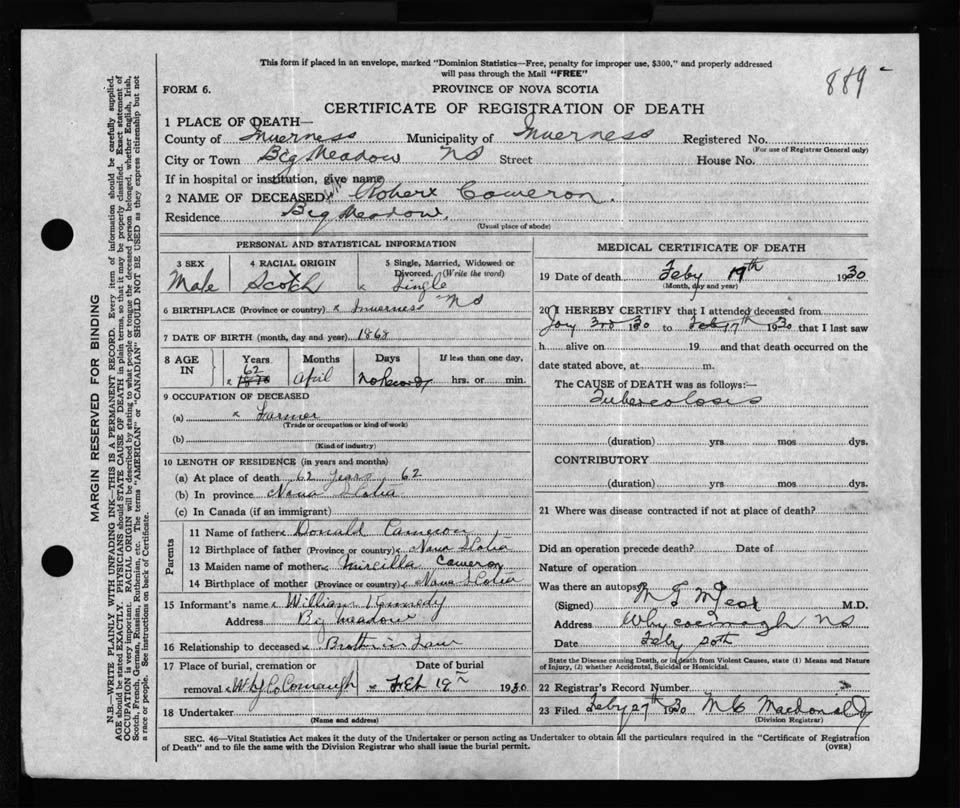 This form if placed in an envelope, marked "Dominion Statistics—Free, penalty for improper use, $300," and properly addressed
will pass through the Mail "FREE"
889
FORM 6.
PROVINCE OF NOVA SCOTIA
CERTIFICATE OF REGISTRATION OF DEATH
1 PLACE OF DEATH—
County of Inverness Municipality of Inverness Registered No.
(For use of Registrar General only)
City or Town Big Meadow NS Street House No.
If in hospital or institution, give name
2 NAME OF DECEASED Robert Cameron.
Residence Big Meadow.
(Usual place of abode)
PERSONAL AND STATISTICAL INFORMATION
3 SEX 4 RACIAL ORIGIN 5 Single, Married, Widowed or Divorced. (Write the word)
Male Scotch x Single
6 BIRTHPLACE (Province or country) x Inverness NS
7 DATE OF BIRTH (month, day and year) 1868
8 AGE IN Years Months Days If less than one day,
62 April No Record hrs. or min.
9 OCCUPATION OF DECEASED
(a) x Farmer
(Trade or occupation or kind of work)
(b)
(Kind of industry)
10 LENGTH OF RESIDENCE (in years and months)
(a) At place of death 62 years 62
(b) In province Nova Scotia
(c) In Canada (if an immigrant)
Parents
11 Name of father x Donald Cameron
12 Birthplace of father (Province or country) x Nova Scotia
13 Maiden name of mother x Mircilla Cameron
14 Birthplace of mother (Province or country) x Nova Scotia
15 Informant's name x William Kennedy
Address Big Meadow
16 Relationship to deceased x Brother in Law
17 Place of burial, cremation or Date of burial
removal x Feb 19 1930
18 Undertaker
(Name and address)
MEDICAL CERTIFICATE OF DEATH
19 Date of death Feby 19th 1930
(Month, day and year)
20 I HEREBY CERTIFY that I attended deceased from
Jany 3rd 30 to Feby 17th 1930 that I last saw
h alive on 19 and that death occurred on the
date stated above, at m.
The CAUSE OF DEATH was as follows:—
Tubercolosis
(duration) yrs mos dys.
CONTRIBUTORY
(duration) yrs mos dys.
21 Where was disease contracted if not at place of death?
Did an operation precede death? Date of
Nature of operation
Was there an autopsy
(Signed) M.D.
Address Whycocomagh NS
Date Feby 20th
State the Disease causing Death, or in death from Violent Causes, state (1) Means and Nature
of Injury, (2) whether Accidental, Suicidal or Homicidal.
22 Registrar's Record Number
23 Filed Feby 27th 1930 M C Macdonald
(Division Registrar)
SEC. 46—Vital Statistics Act makes it the duty of the Undertaker or person acting as Undertaker to obtain all the particulars required in the "Certificate of Registration
of Death" and to file the same with the Division Registrar who shall issue the burial permit.
(OVER)
MARGIN RESERVED FOR BINDING
N.B.—WRITE PLAINLY WITH UNFADING INK—THIS IS A PERMANENT RECORD. Every item of information should be carefully supplied.
AGE should be stated EXACTLY. PHYSICIANS should STATE CAUSE OF DEATH in plain terms, so that it may be properly classified. Exact statement of
OCCUPATION is very important. RACIAL ORIGIN will be described by stating to what people or tongue the deceased person belonged, whether English, Irish,
Scotch, French, German, Russian, Ruthenian, etc. The terms "AMERICAN" or "CANADIAN" SHOULD NOT BE USED as they express citizenship but not
a race or people. See instructions on back of Certificate.